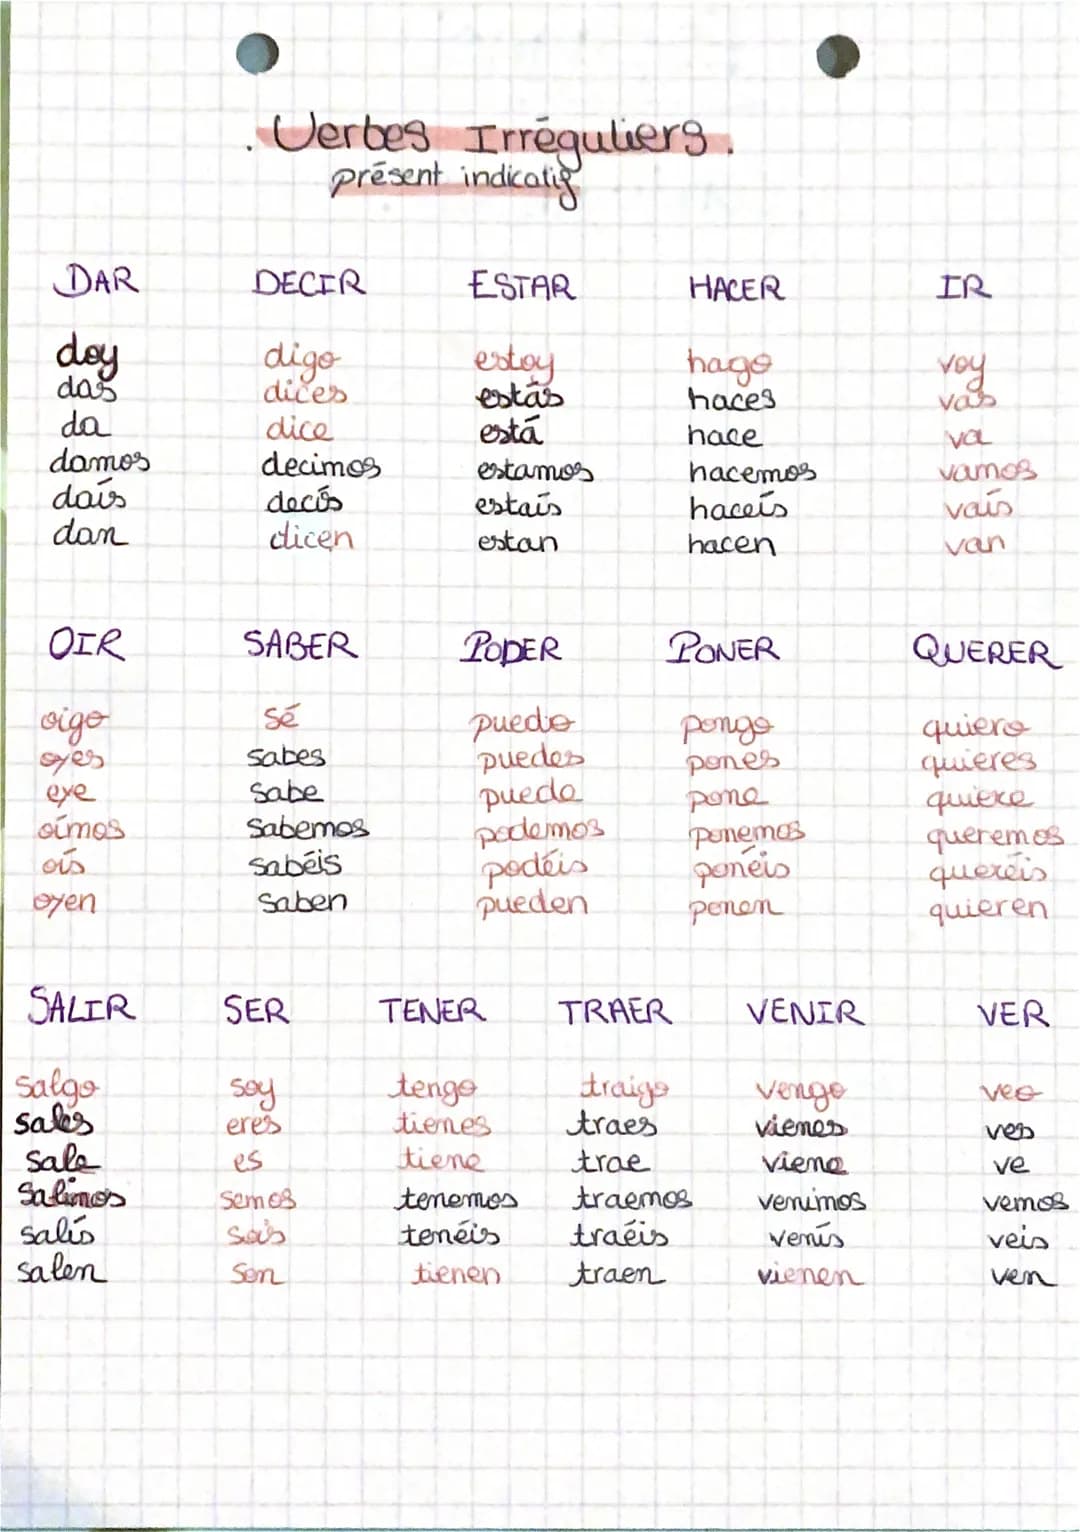 . Verbes Irréguliers.
présent indicatif
DAR DECIR ESTAR HACER IR
doy digo estoy hago voy
das dices estás haces vas
da dice está hace va
damos decimos estamos hacemos vamos
daís decís estaís haceís vaís
dan dicen estan hacen van
OIR SABER PODER PONER QUERER
oigo sé puedo pongo quiero
oyes sabes puedes pones quieres
oye sabe puede pone quiere
oímos sabemos podemos ponemos queremos
oís sabéis podéis ponéis queréis
oyen saben pueden ponen quieren
SALIR SER TENER TRAER VENIR VER
salgo soy tengo traigo vengo veo
sales eres tienes traes vienes ves
sale es tiene trae viene ve
salimos somos tenemos traemos venimos vemos
salís sois tenéis traéis venís veis
salen son tienen traen vienen ven